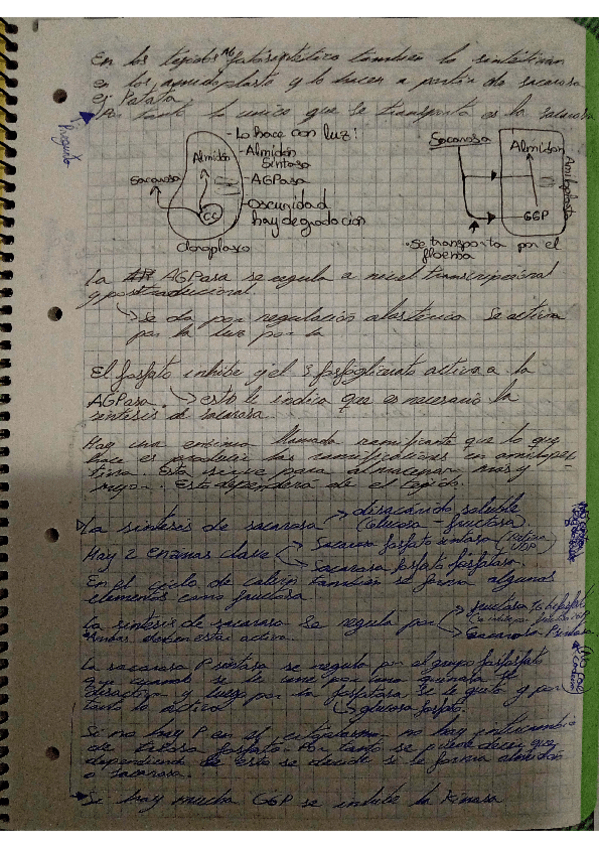 En los tejidos no fotosintético también lo sintetizan
en los amiloplasto y lo hacen a partir de sacarosa
ej Patata
Por tanto lo unico que se transporta es la sacarosa
Pregunta
Sacarosa
Almidón
CC
Cloroplasto
- Lo hace con luz:
- Almidón sintasa
- AGPasa
- Oscuridad
hay degradación
Sacarosa
Almidon
GGP
Amiloplasto
• Se transporta por el
floema
La AGPasa se regula a nivel transcripcional
y postraduccional.
Se da por regulación alostérica Se activa
por la luz por la
El fosfato inhibe y el 3 fosfoglicerato activa a la
AGPasa. esto le indica que es necesario la
sintesis de sacarosa.
Hay una enzima llamada ramificante que lo que
hace es producir las ramificaciones en amilopec-
tina. Esto sirve para almacenar mas y
mejor. Esto dependerá de el tejido.
La sintesis de sacarosa disacarido soluble
(Glucosa - fructosa).
Hay 2 enzimas clave Sacarosa fosfato sintasa (
UDP)
Sacarosa fosfato fosfatasa.
En el ciclo de calvin tambien se forma algunos
elementos como fructosa.
La sintesis de sacarosa se regula por fructosa 1,6 bifosfato
ambas deben estar activa. sacarosa P sintasa
La sacarosa P sintasa se regula por el grupo fosfato
que cuando se le une por una quinasa se
desactiva y luego por la fosfatasa se le quita y por
tanto lo activa glucosa fosfato.
Si no hay P en el citoplasma no hay intercambio
de triosa fosfato. Por tanto se puede decir que
dependiendo de esto se decide si se forma almidón
o sacarosa.
Si hay mucha G6P se inhibe la kinasa